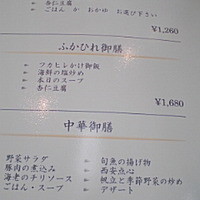 杏仁豆腐
ごはん か おかゆ お選び下さい
¥1,260
ふかひれ御膳
フカヒレかけ御飯
海鮮の塩炒め
本日のスープ
杏仁豆腐
¥1,680
中華御膳
野菜サラダ
豚肉の煮込み
海老のチリソース
ごはん・スープ
旬魚の揚げ物
西安点心
帆立と季節野菜の炒め
デザート